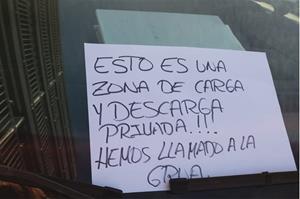 ESTO ES UNA
ZONA DE CARGA
Y DESCARGA
PRIVADA!...
HEMOS LLAMADO A LA
GRUA.